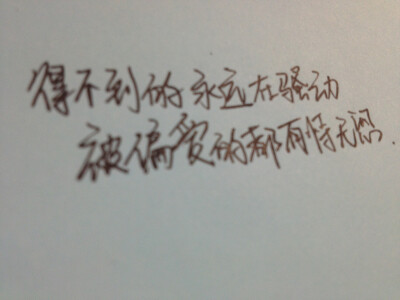 得不到的永远在骚动
被偏爱的都有恃无恐.